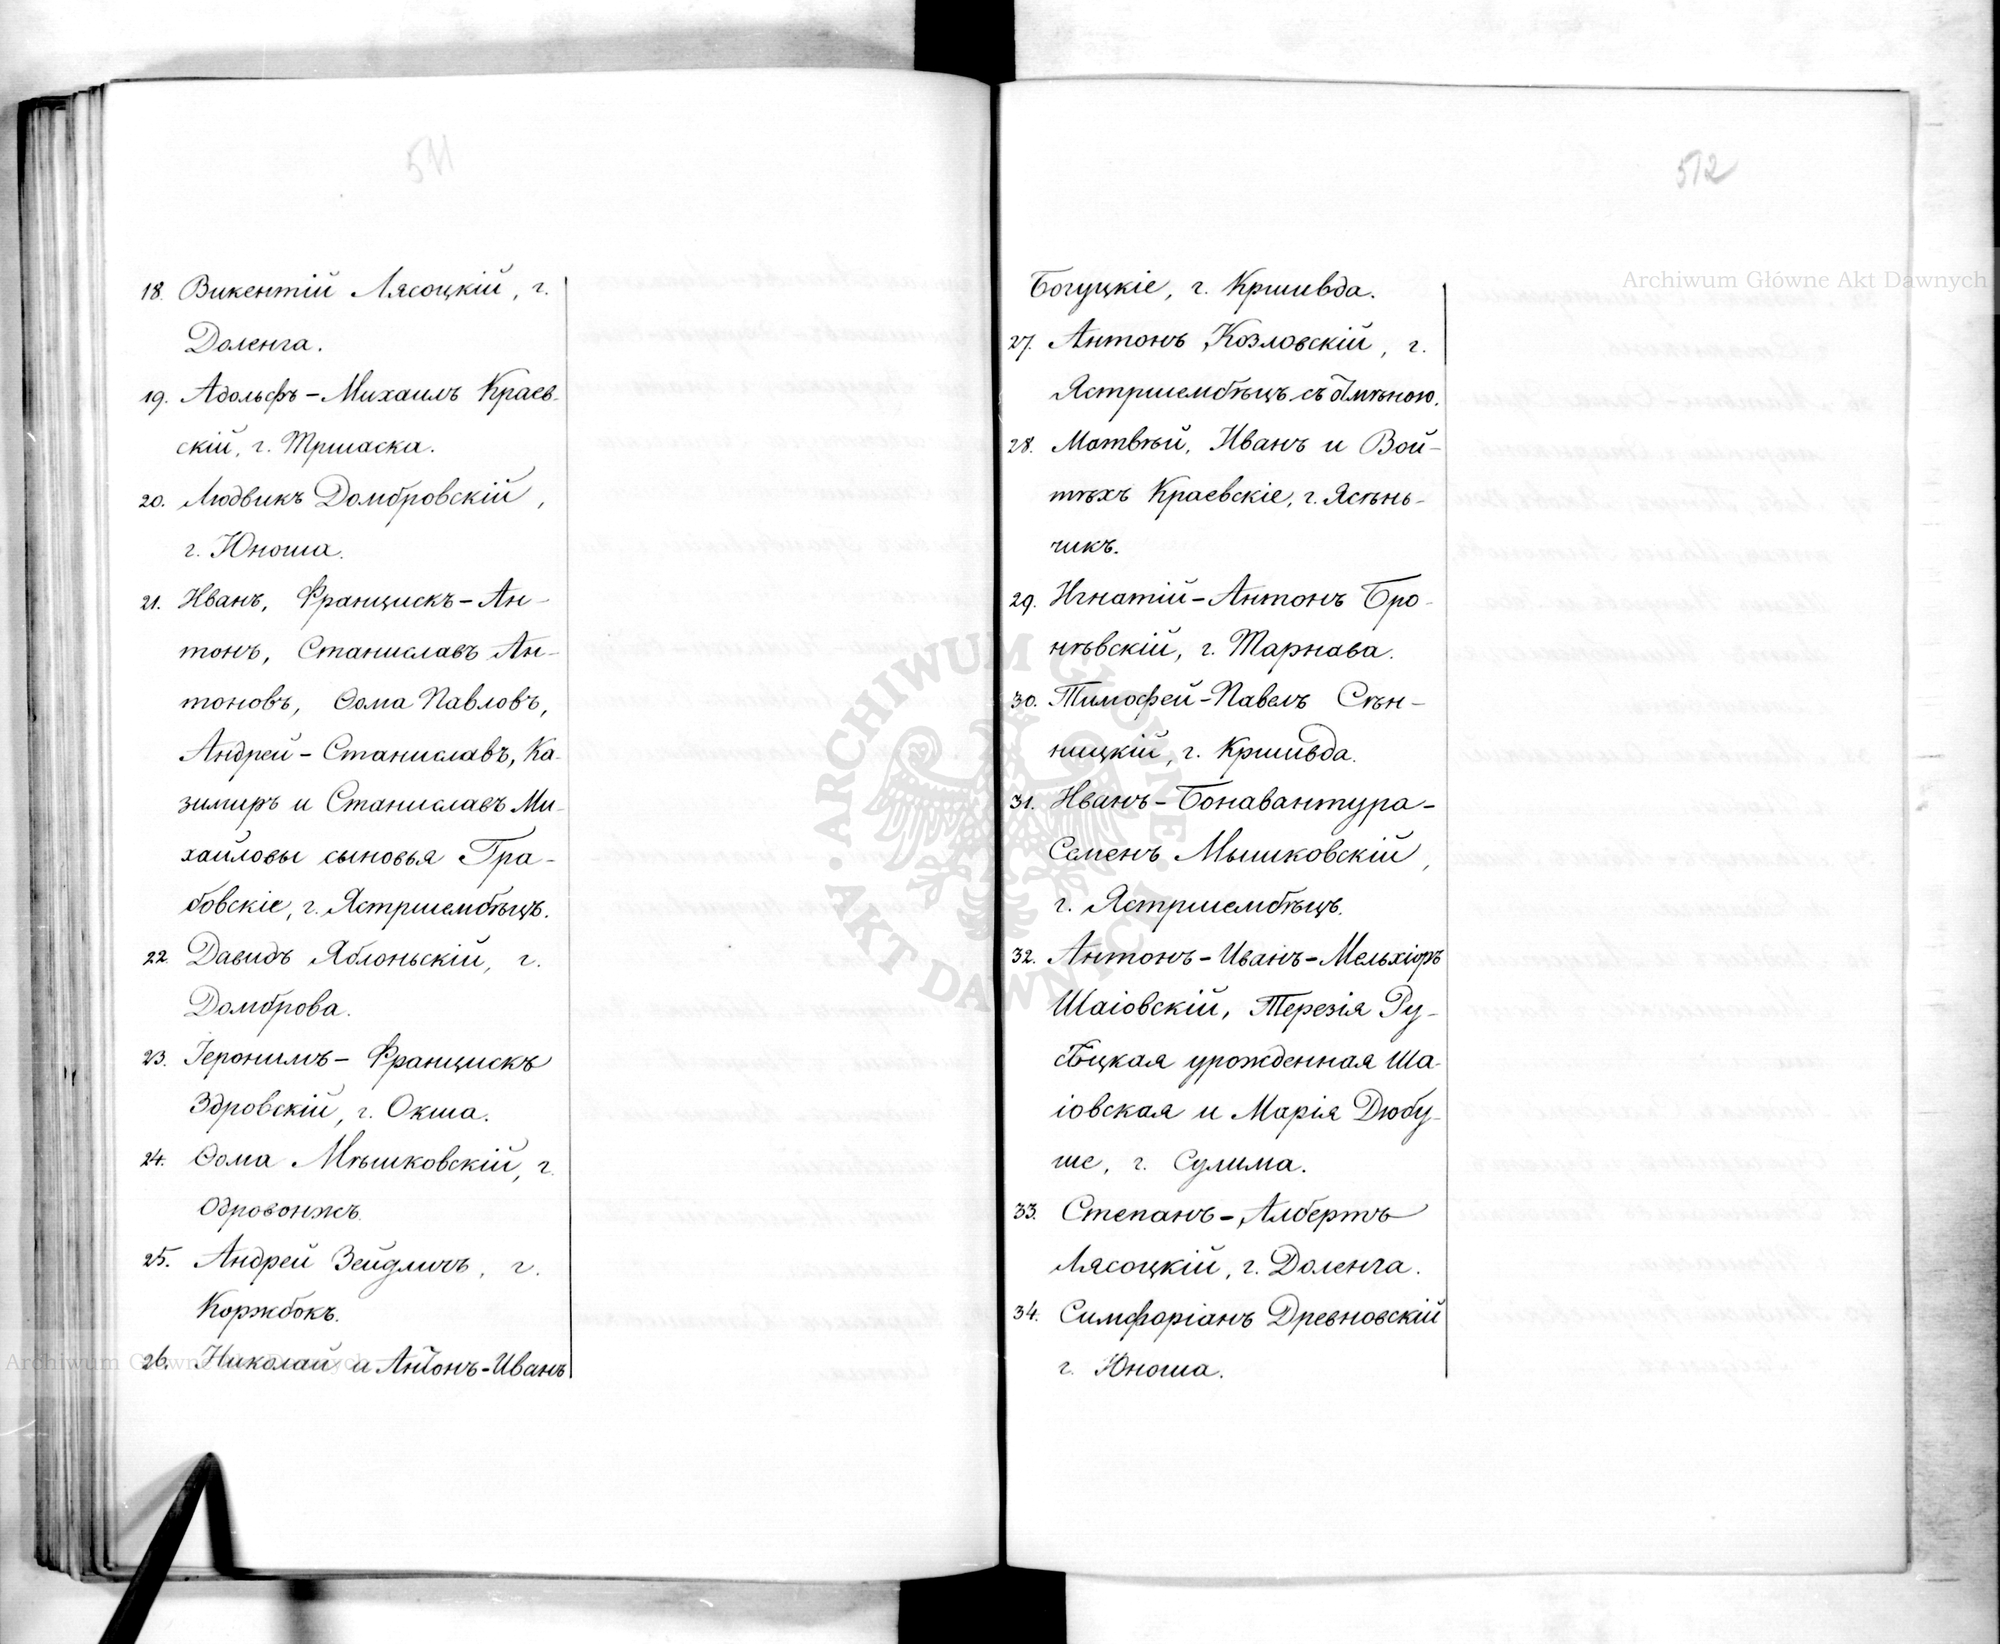 511
18. Викентій Лясоцкій, г.
Доленга.
19. Адольфъ-Михаилъ Краев-
скій, г. Тршаска.
20. Людвикъ Домбровскій,
г. Юноша.
21. Иванъ, Францискъ-Ан-
тонъ, Станиславъ Ан-
тоновъ, Ѳома Павловъ,
Андрей-Станиславъ, Ка-
зимиръ и Станиславъ Ми-
хайловы сыновья Гра-
бовскіе, г. Ястршембѣцъ.
22. Давидъ Яблоньскій, г.
Домброва.
23. Іеронимъ-Францискъ
Здровскій, г. Окша.
24. Ѳома Мѣшковскій, г.
Одровонжъ.
25. Андрей Зейдличъ, г.
Коржбокъ.
26. Николай и Антонъ-Иванъ
512
Богуцкіе, г. Кршивда.
27. Антонъ Козловскій, г.
Ястршембѣцъ съ отмѣною.
28. Матвѣй, Иванъ и Вой-
тѣхъ Краевскіе, г. Ясѣнь-
чикъ.
29. Игнатій-Антонъ Бро-
нѣвскій, г. Тарнава.
30. Тимофей-Павелъ Сѣн-
ницкій, г. Кршивда.
31. Иванъ-Бонавантура-
Семенъ Мышковскій,
г. Ястршембѣцъ.
32. Антонъ-Иванъ-Мельхіоръ
Шаіовскій, Терезія Ру-
сѣцкая урожденная Ша-
іовская и Марія Дюбу-
ше, г. Сулима.
33. Степанъ-Албертъ
Лясоцкій, г. Доленга.
34. Симфоріанъ Древновскій
г. Юноша.
Archiwum Główne Akt Dawnych
ARCHIWUM GŁÓWNE AKT DAWNYCH
Archiwum Główne Akt Dawnych